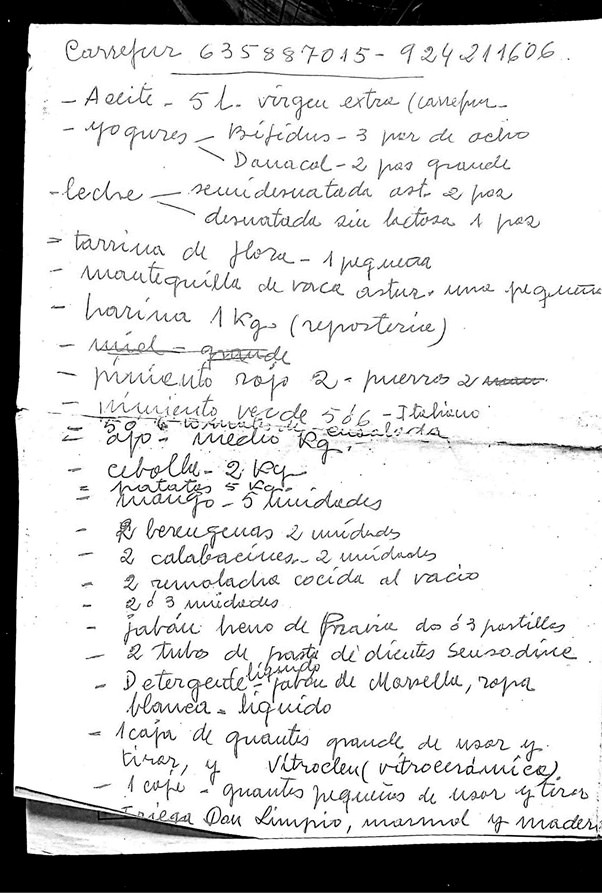 Carrefur 635887015 - 924211606
- Aceite - 5 l. virgen extra (carrefur-
- yogures - Bífidus - 3 por de ocho
Danacol - 2 pas grande
- leche - semidesnatada ast. 2 pas
desnatada sin lactosa 1 pas
= tarrina de flora - 1 pequeña
- mantequilla de vaca astur. una pequeña
- harina 1 Kg. (reposteria)
- miel - grande
- pimiento rojo 2 - puerros 2
- pimiento verde 5 ó 6 - Italiano
5 ó 6 tomates de ensalada
= ajo - medio Kg.
- cebolla - 2 Kg
= patatas 5 Kg.
= mango - 5 unidades
- 2 berengenas 2 unidades
- 2 calabacines - 2 unidades
- 2 remolacha cocida al vacio
- 2 ó 3 unidades
- jabón heno de Pravia dos ó 3 pastillas
- 2 tubos de pasta de dientes Sensodine
líquido
- Detergente = jabón de Marsella, ropa
blanca = líquido
- 1 caja de guantes grande de usar y
tirar, y Vitroclen (vitrocerámica)
- 1 caje - guantes pequeños de usar y tirar
Friega Don Limpio, marmol y mader